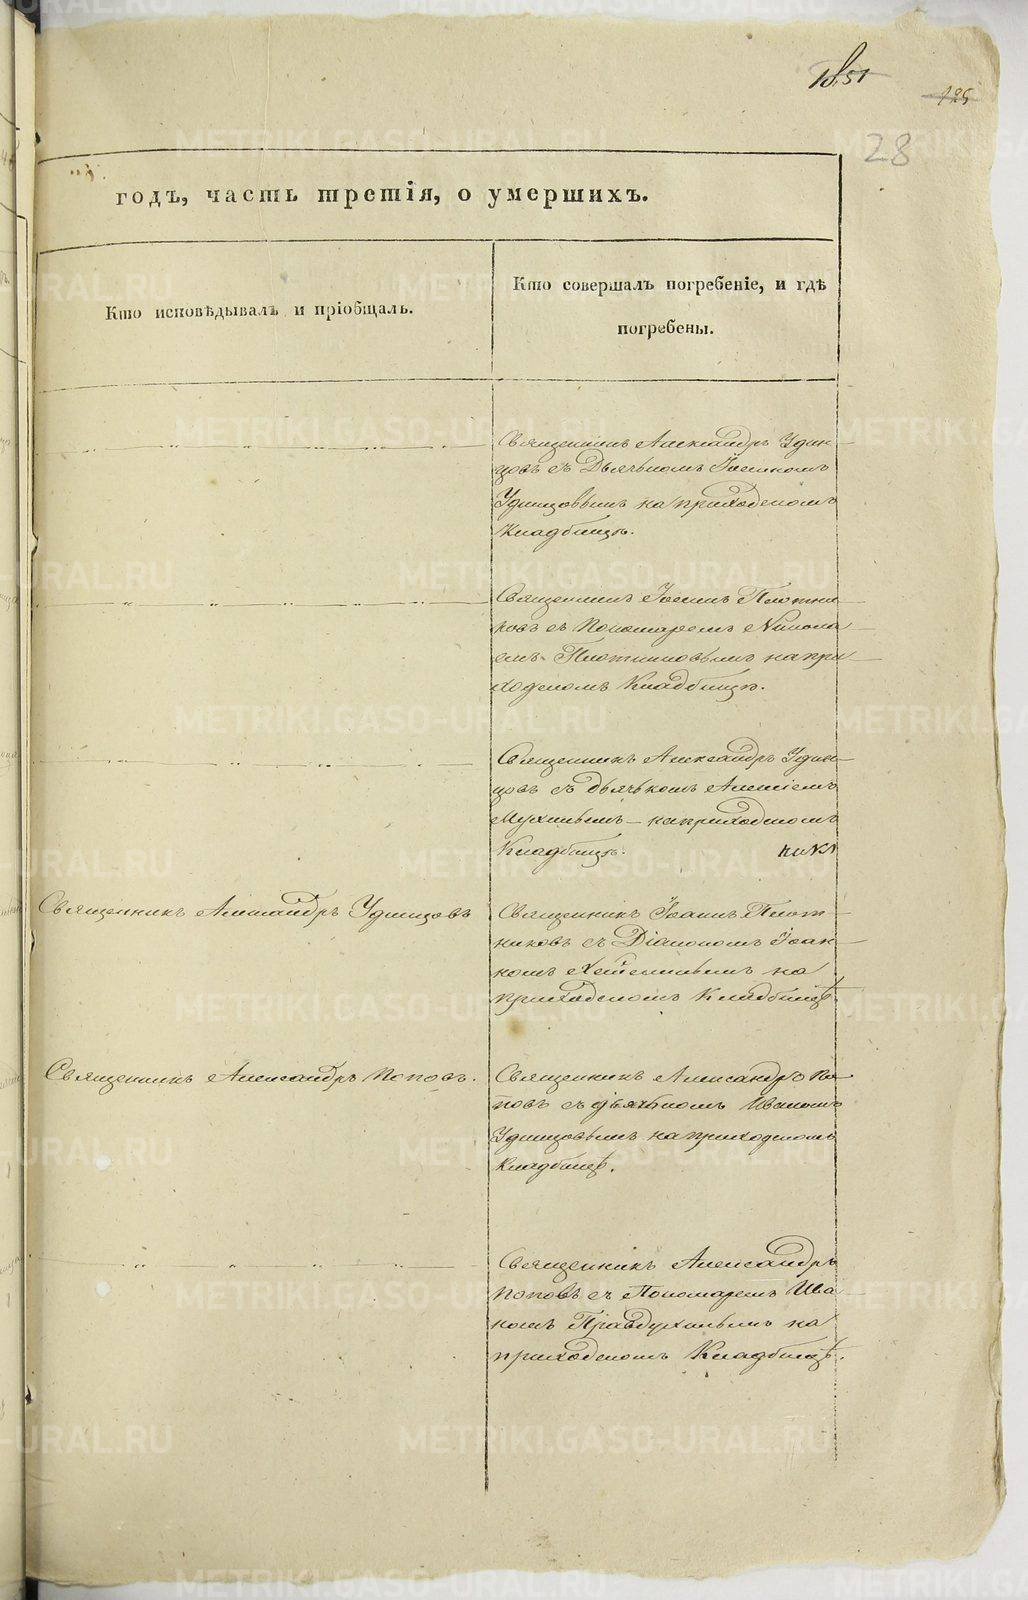 1851
125
28
годъ, часть третія, о умершихъ.
Кто исповѣдывалъ и пріобщалъ.
Кто совершалъ погребеніе, и гдѣ
погребены.
Священникъ Александръ Удин-
цовъ съ Дьячкомъ Іоанномъ
Удинцовымъ на приходскомъ
Кладбищѣ.
Священникъ Іоаннъ Плотни-
ковъ съ Пономаремъ Никола-
емъ Плотниковымъ на при-
ходскомъ Кладбищѣ.
Священникъ Александръ Удин-
цовъ съ дьячкомъ Алексіемъ
Мухинымъ на приходскомъ
Кладбищѣ.
Священникъ Александръ Удинцовъ
Священникъ Іоаннъ Плот-
никовъ съ Діакономъ Іоан-
номъ на
приходскомъ Кладбищѣ.
Священникъ Александръ Поповъ.
Священникъ Александръ По-
повъ съ дьячкомъ Иваномъ
Удинцовымъ на приходскомъ
Кладбищѣ.
Священникъ Александръ
Поповъ съ Пономаремъ Ива-
номъ Правдухинымъ на
приходскомъ Кладбищѣ.
METRIKI.GASO-URAL.RU